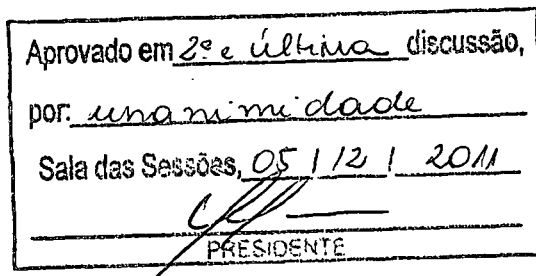 Aprovado em 2ª e última discussão,
por: unanimidade
Sala das Sessões, 05 / 12 / 2011
PRESIDENTE